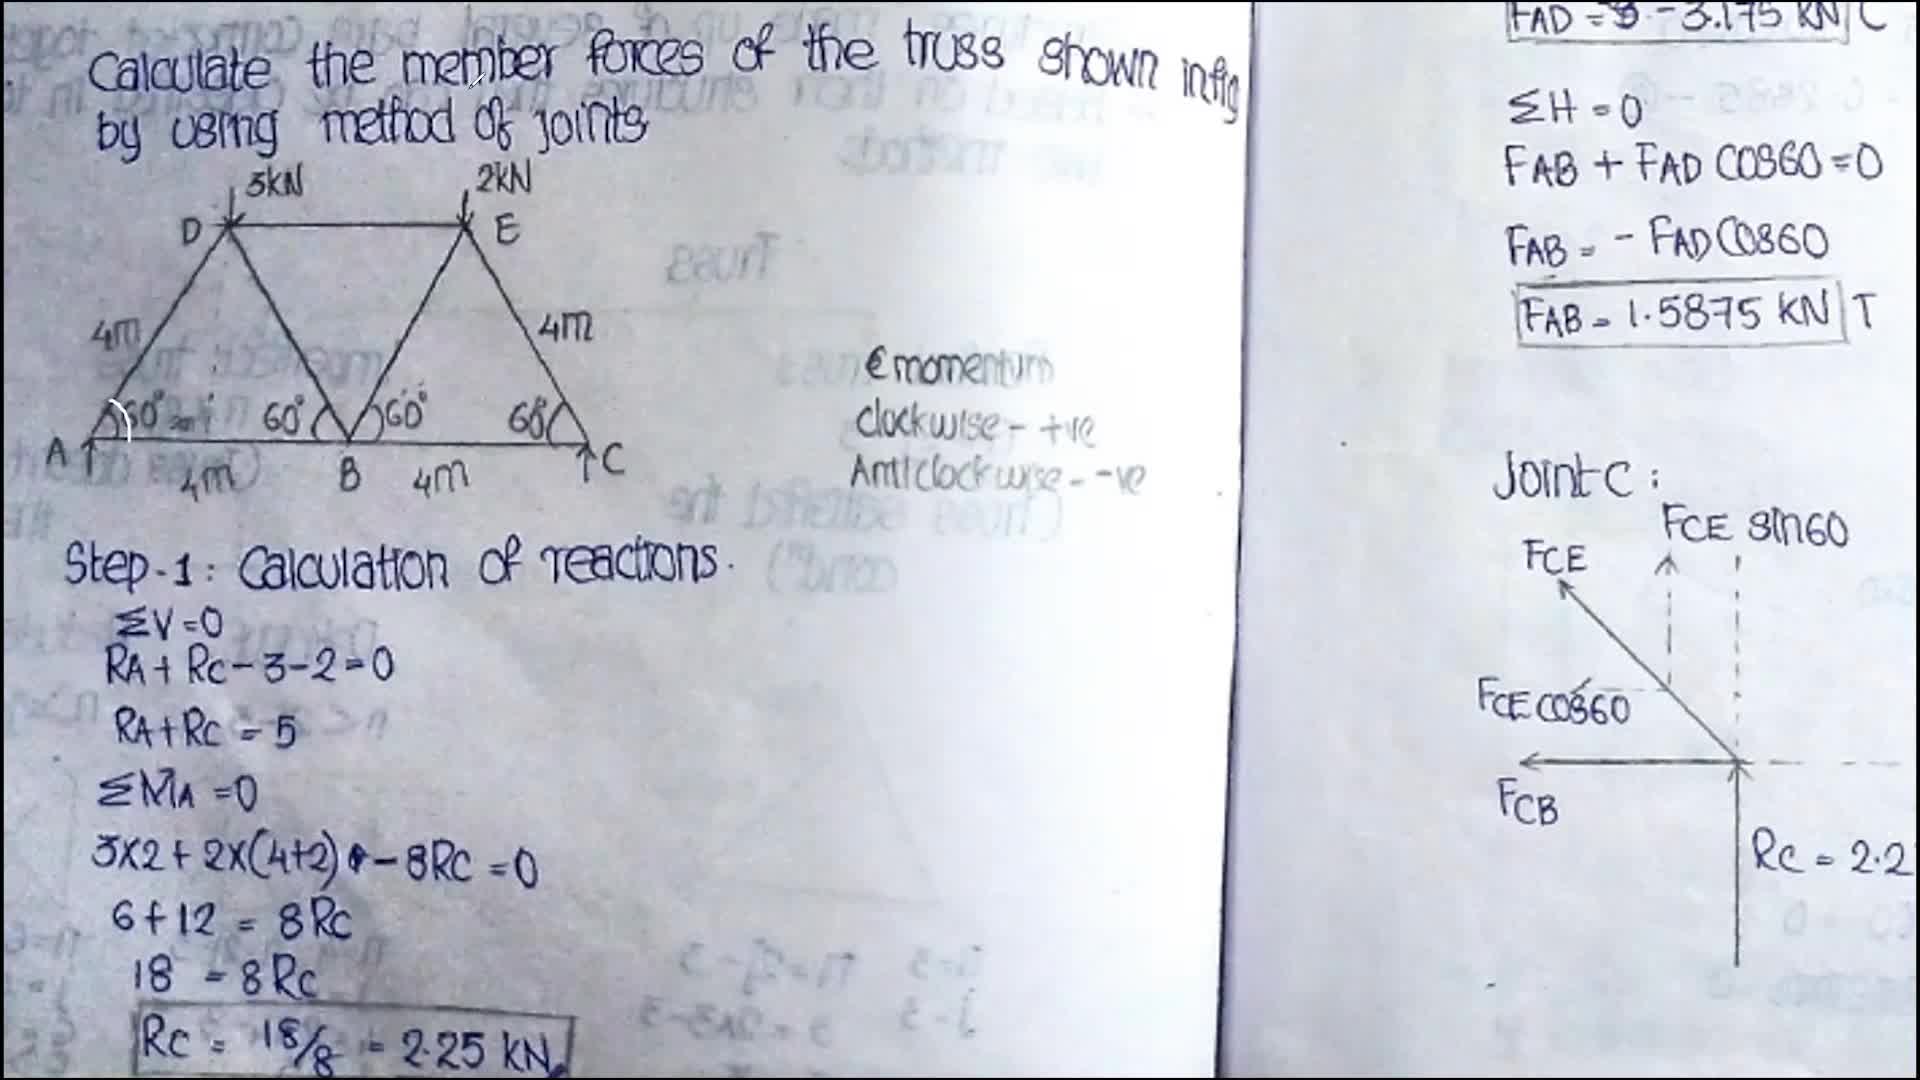 Calculate the member forces of the truss shown in fig
by using method of joints
3KN
2KN
D
E
4m
4m
60°
60°
60°
60°
A
B
C
4m
4m
€ momentum
Clockwise - +ve
Anticlockwise - -ve
Step-1: Calculation of reactions.
ΣV=0
RA + RC - 3 - 2 = 0
RA + RC = 5
ΣMA = 0
3x2 + 2x(4+2) - 8RC = 0
6 + 12 = 8RC
18 = 8RC
RC = 18/8 = 2.25 KN.
FAD = - 3.175 KN C
ΣH = 0
FAB + FAD COS60 = 0
FAB = - FAD COS60
FAB = 1.5875 KN T
Joint C :
FCE sin60
FCE
FCE COS60
FCB
RC = 2.2